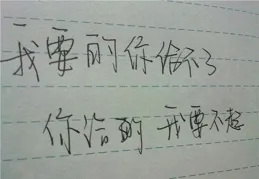 我要的你给不了
你给的 我要不起